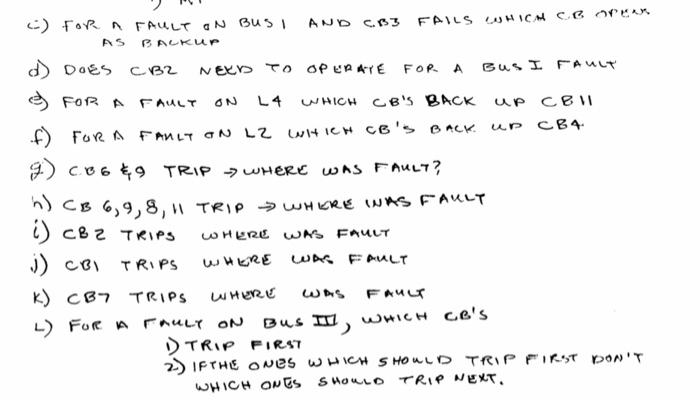 c) FOR A FAULT ON BUS I AND CB3 FAILS WHICH CB OPENS
AS BACKUP
d) DOES CB2 NEED TO OPERATE FOR A BUS I FAULT
e) FOR A FAULT ON L4 WHICH CB'S BACK UP CB11
f) FOR A FAULT ON L2 WHICH CB'S BACK UP CB4.
g) CB6 & 9 TRIP → WHERE WAS FAULT?
h) CB 6,9,8,11 TRIP → WHERE WAS FAULT
i) CB2 TRIPS WHERE WAS FAULT
j) CB1 TRIPS WHERE WAS FAULT
K) CB7 TRIPS WHERE WAS FAULT
L) FOR A FAULT ON BUS III, WHICH CB'S
1) TRIP FIRST
2) IF THE ONES WHICH SHOULD TRIP FIRST DON'T
WHICH ONES SHOULD TRIP NEXT.